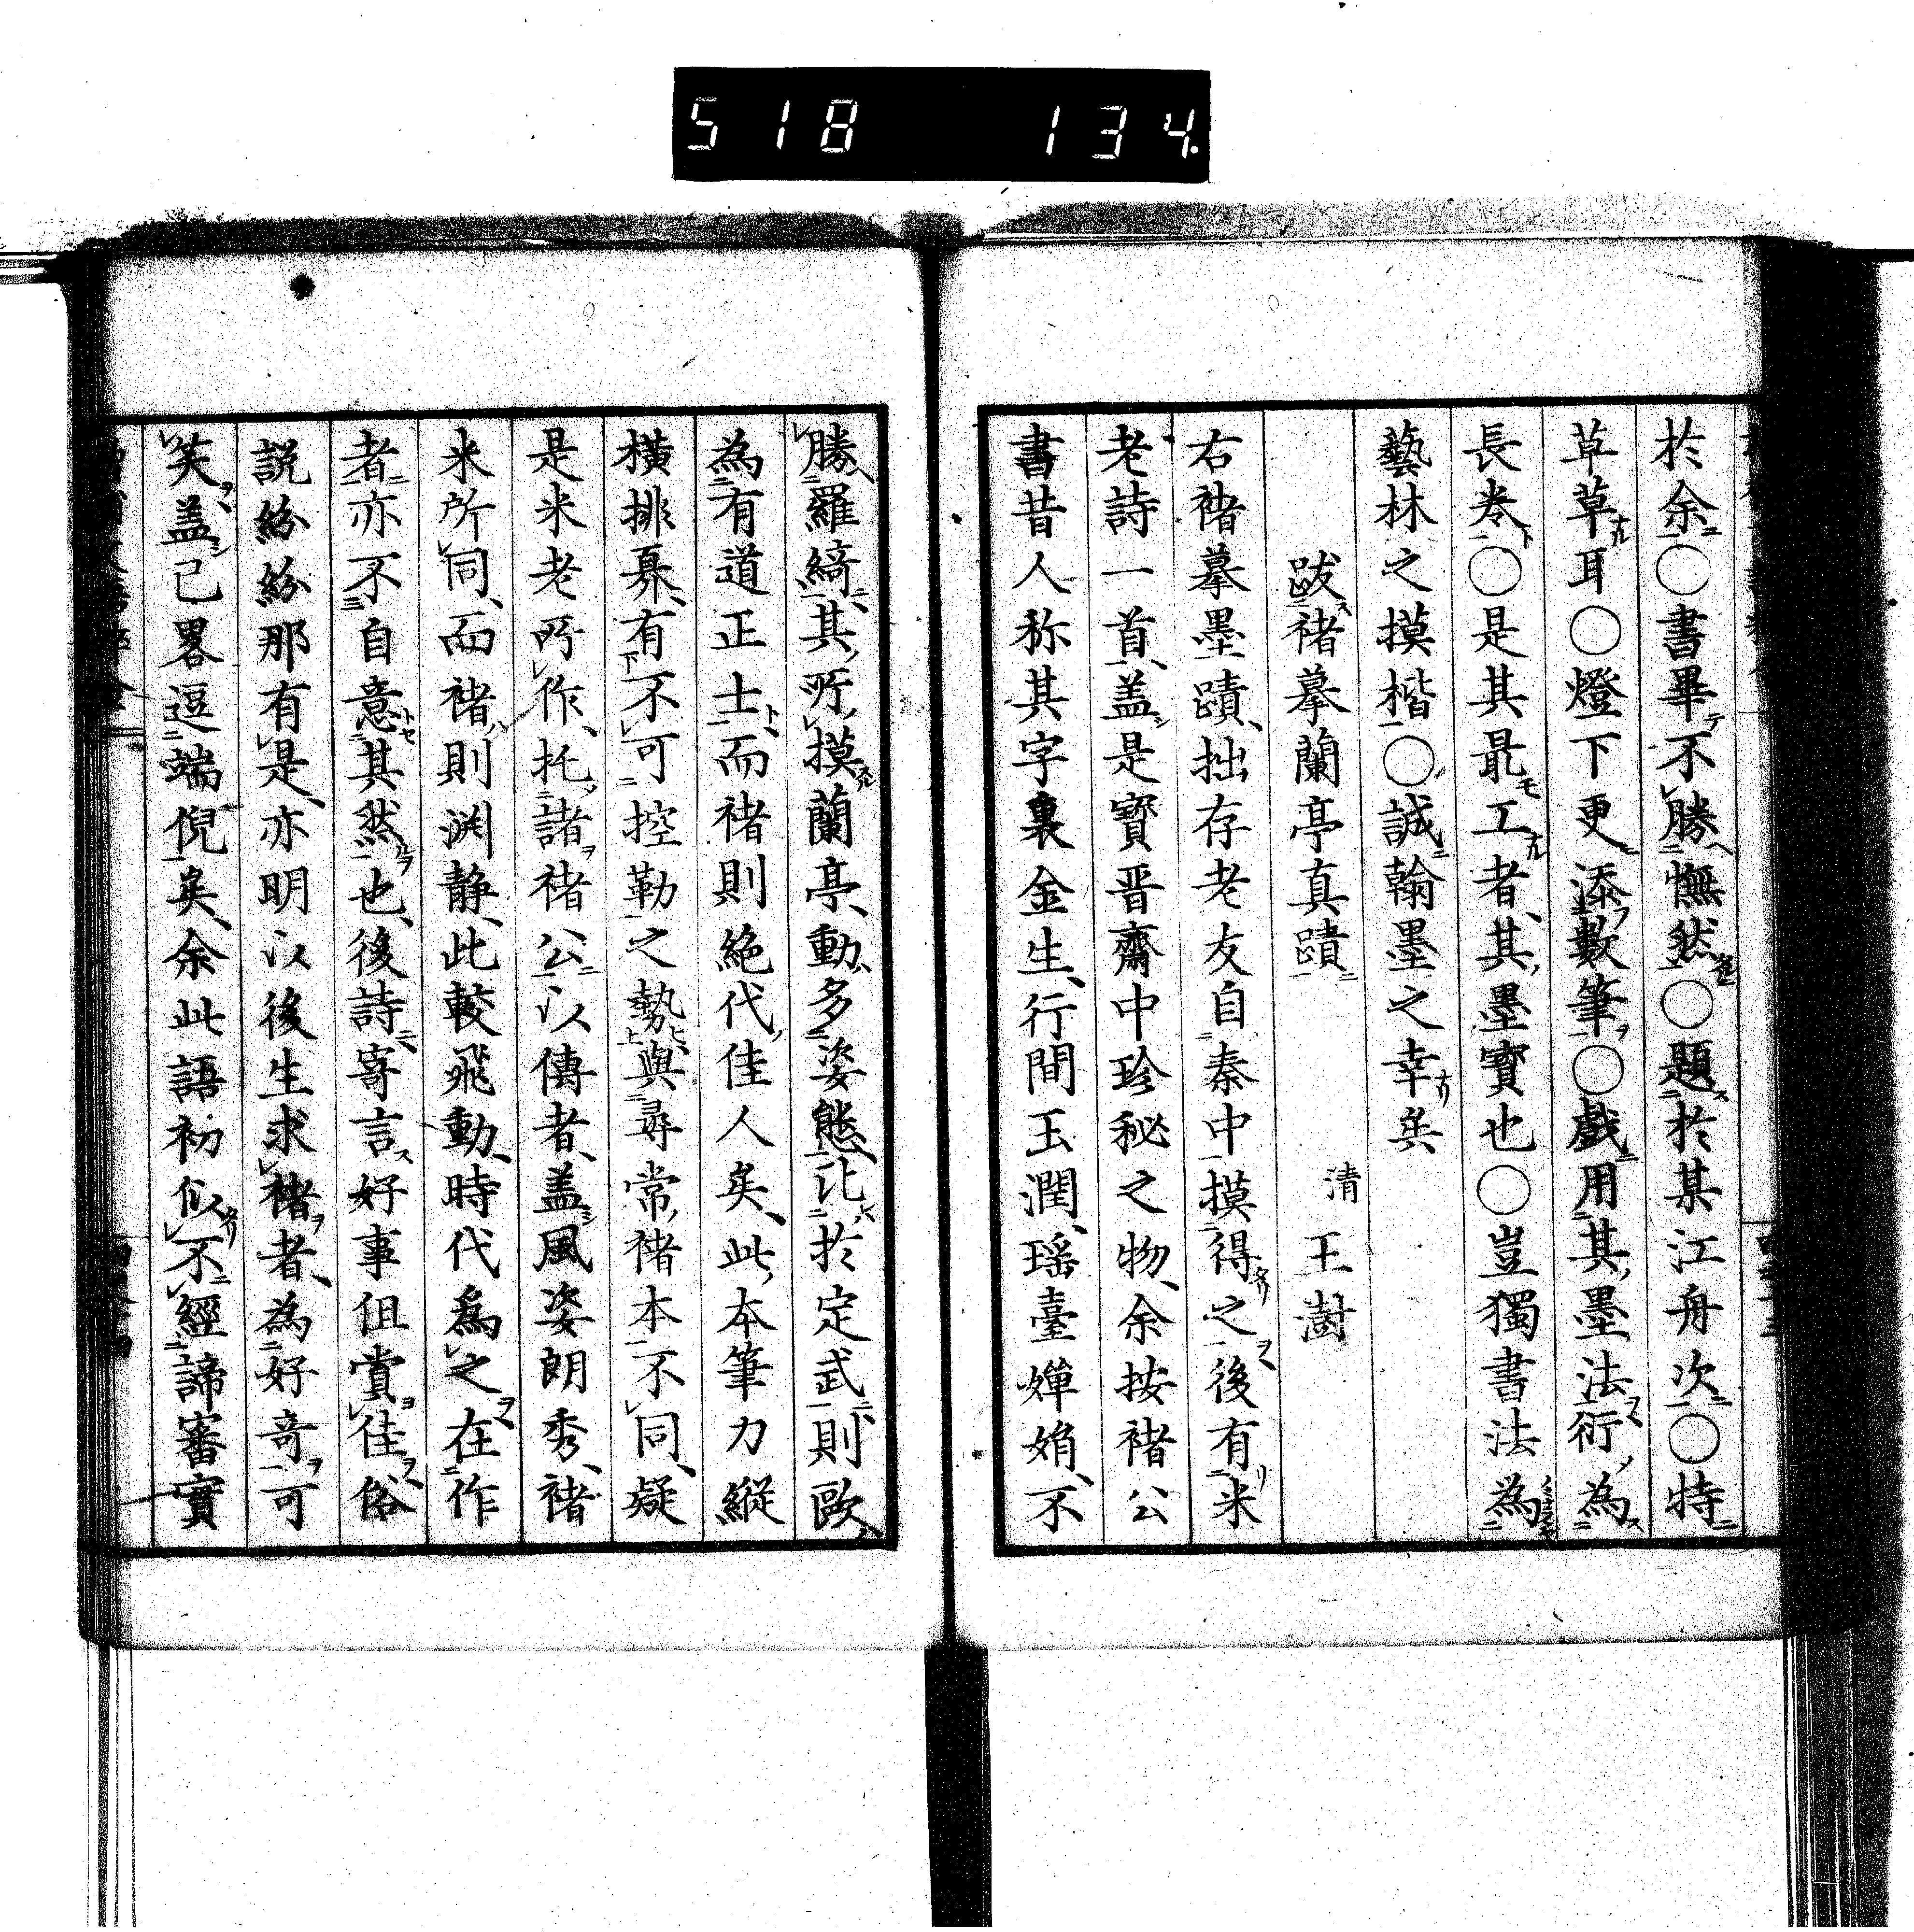 518 134
於余〇書畢不勝憮然〇題於某江舟次〇特
草草耳〇燈下更添數筆〇戲用其墨法衍為
長卷〇是其最工者其墨寶也〇豈獨書法為
藝林之摸楷〇誠翰墨之幸矣
跋褚摹蘭亭真蹟 清 王澍
右褚摹墨蹟、拙存老友自秦中摸得之後有米
老詩一首、盖是寳晋齋中珍秘之物、余按褚公
書昔人称其字裏金生、行間玉潤、瑶臺嬋娟、不
勝羅綺、其所摸蘭亭、動多姿態、比於定武則歐
為有道正士、而褚則絶代佳人矣、此本筆力縱
横排奡、有不可控勒之勢、與尋常褚本不同、疑
是米老所作、托諸褚公以傳者、盖風姿朗秀、褚
米所同、而褚則渊静、此較飛動、時代爲之在作
者亦不自意其然也、後詩寄言好事但賞佳俗
説紛紛那有是、亦明以後生求褚者、為好奇可
笑盖已畧逗端倪矣、余此語初似不經諦審實